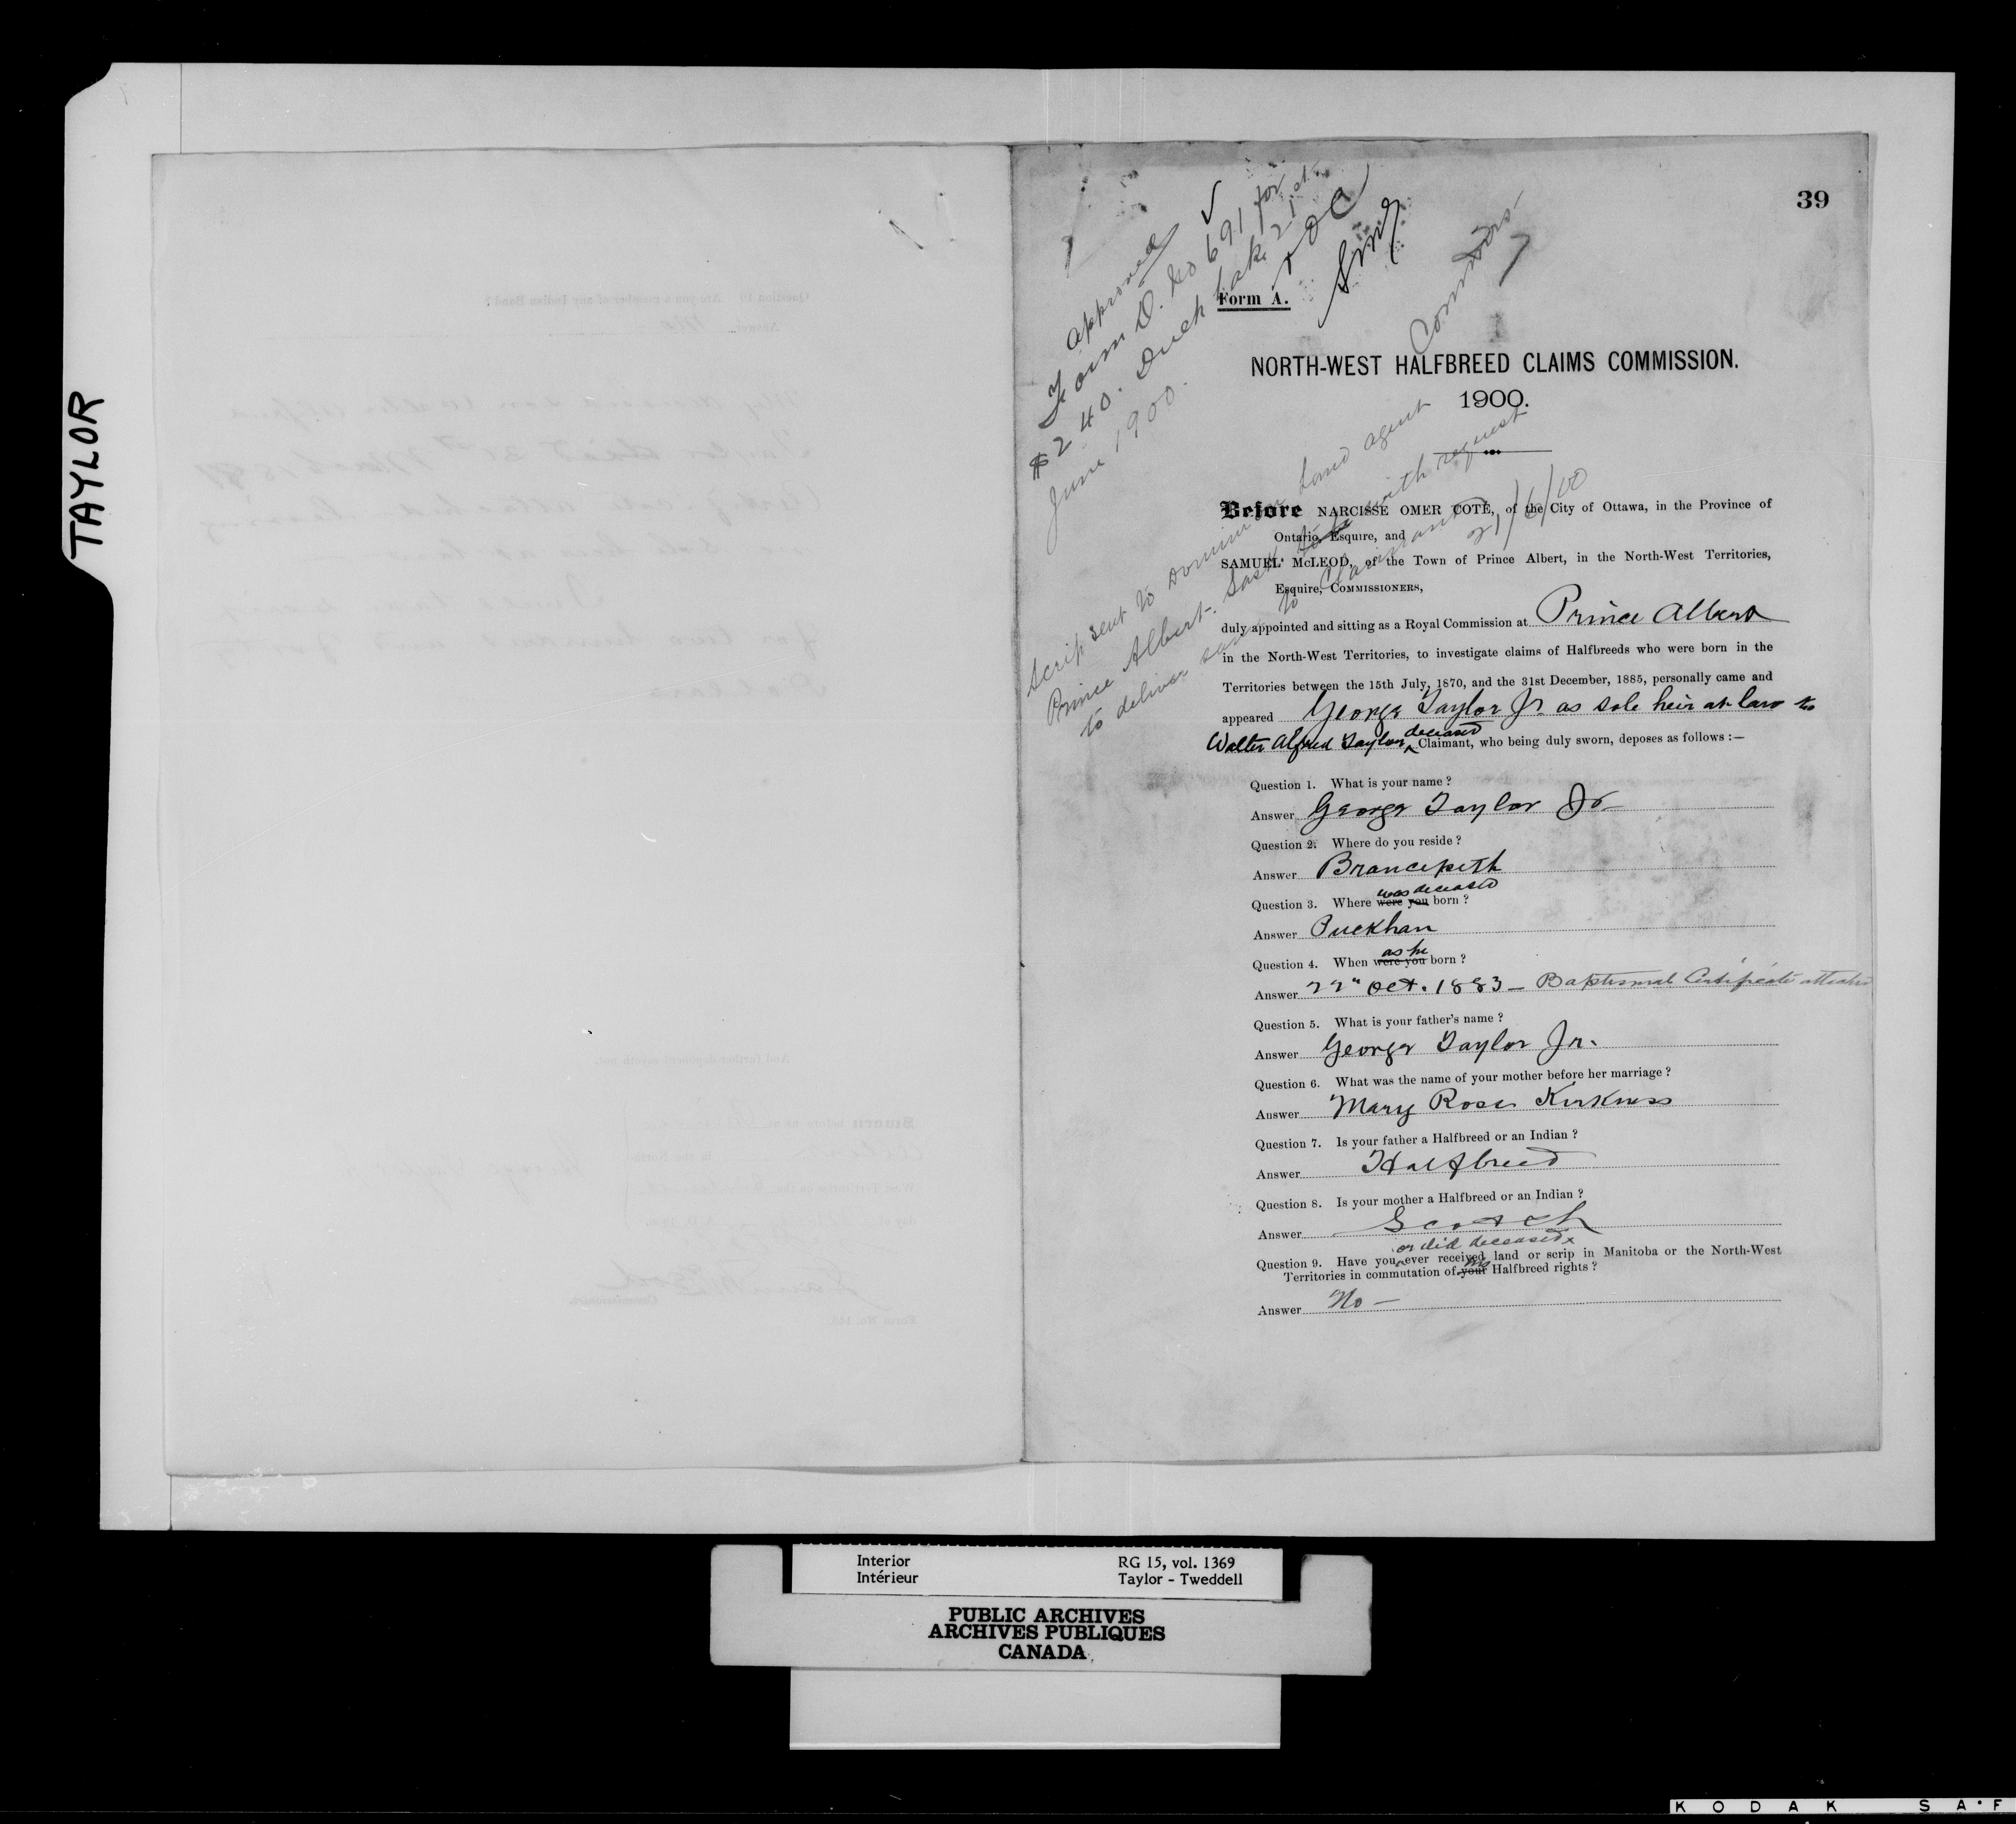 TAYLOR
39
Approved ✓
Form D. No 691 for
$240. Duck Lake 21st
June 1900.
NOC
SMcL
Commrs
Form A.
NORTH-WEST HALFBREED CLAIMS COMMISSION.
1900.
Scrip sent to Dominion Land agent
Prince Albert. Sask with request
to deliver same to Claimant
21/6/00
Before NARCISSE OMER COTÉ, of the City of Ottawa, in the Province of
Ontario, Esquire, and
SAMUEL McLEOD, of the Town of Prince Albert, in the North-West Territories,
Esquire, COMMISSIONERS,
duly appointed and sitting as a Royal Commission at Prince Albert
in the North-West Territories, to investigate claims of Halfbreeds who were born in the
Territories between the 15th July, 1870, and the 31st December, 1885, personally came and
appeared George Taylor Jr as sole heir at law to
Walter Alfred Taylor deceased Claimant, who being duly sworn, deposes as follows :—
Question 1. What is your name ?
Answer George Taylor Jr
Question 2. Where do you reside ?
Answer Brancepeth
was deceased
Question 3. Where were you born ?
Answer Puckhan
as he
Question 4. When were you born ?
Answer 22" Oct. 1883 — Baptismal Certificate attached
Question 5. What is your father's name ?
Answer George Taylor Jr.
Question 6. What was the name of your mother before her marriage ?
Answer Mary Rose Kirkness
Question 7. Is your father a Halfbreed or an Indian ?
Answer Halfbreed
Question 8. Is your mother a Halfbreed or an Indian ?
Answer Scotch
or did deceased
Question 9. Have you ever received land or scrip in Manitoba or the North-West
Territories in commutation of your his Halfbreed rights ?
Answer No —
Interior RG 15, vol. 1369
Intérieur Taylor - Tweddell
PUBLIC ARCHIVES
ARCHIVES PUBLIQUES
CANADA
KODAK SAF